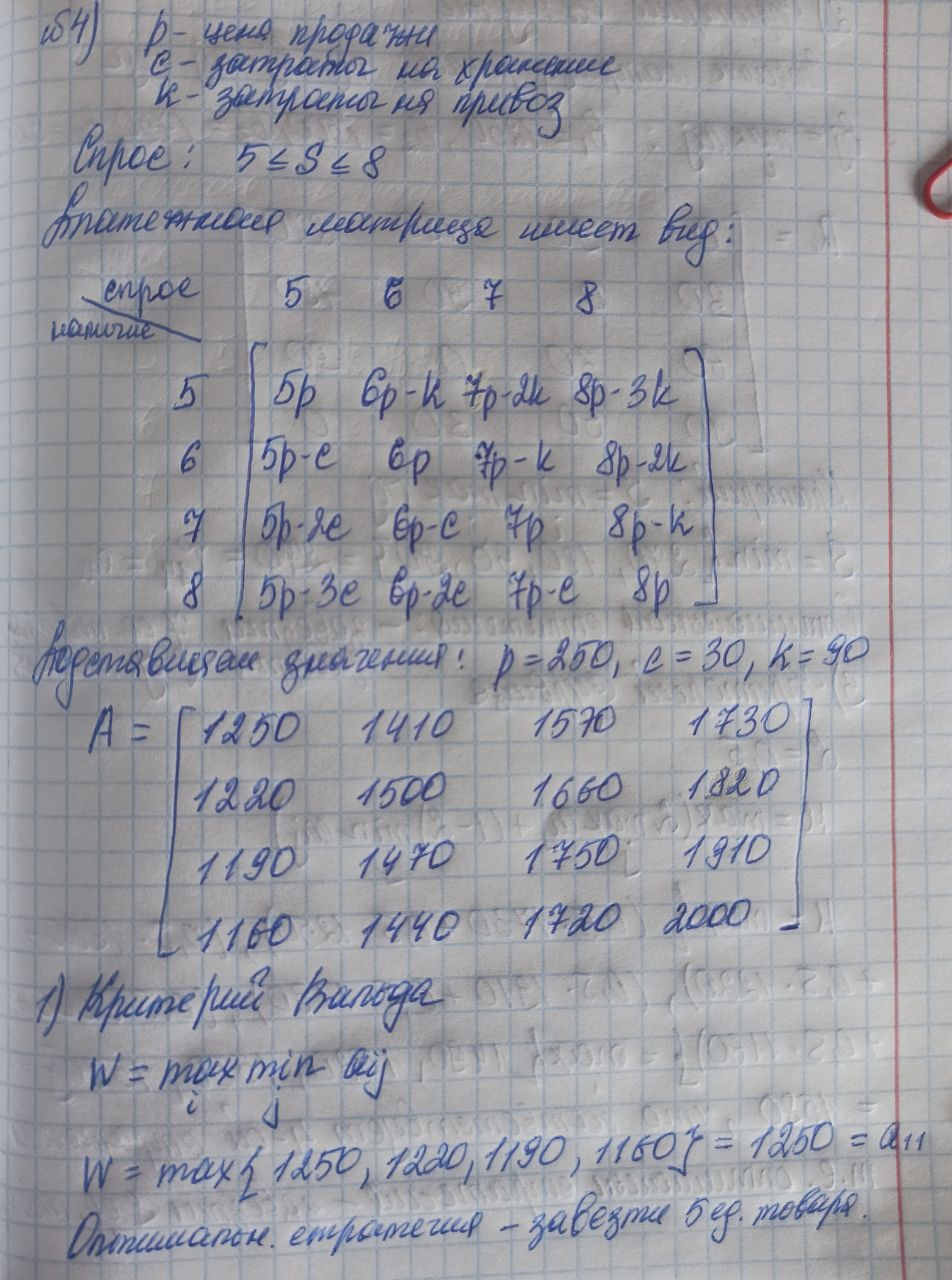 №4) p - цена продажи
c - затраты на хранение
k - затраты на привоз
Спрос: 5 ≤ S ≤ 8
Платежная матрица имеет вид:
спрос 5 6 7 8
наличие
5 5p 6p-k 7p-2k 8p-3k
6 5p-c 6p 7p-k 8p-2k
7 5p-2c 6p-c 7p 8p-k
8 5p-3c 6p-2c 7p-c 8p
Подставим значения: p=250, c=30, k=90
A = 1250 1410 1570 1730
1220 1500 1660 1820
1190 1470 1750 1910
1160 1440 1720 2000
1) Критерий Вальда
W = max min aij
i j
W = max{1250, 1220, 1190, 1160} = 1250 = a11
Оптимальн. стратегия - завезти 5 ед. товара.